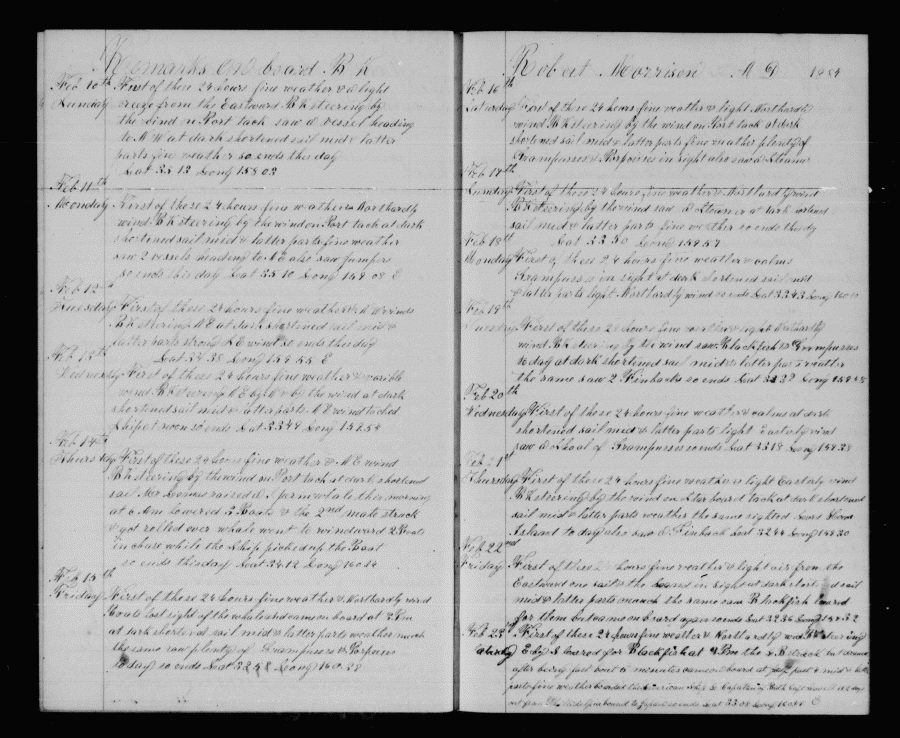 Remarks on board Bk
Feb 10th First of these 24 hours fine weather & a light
Sunday breeze from the Eastward Bk steering by
the wind on Port tack saw a vessel heading
to NW at dark shortened sail mid & latter
parts fine weather so ends the day
Lat 35 13 Long 158 03
Feb 11th
Monday First of these 24 hours fine weather & Northardly
wind Bk steering by the wind on Port tack at dark
shortened sail mid & latter parts fine weather
saw 2 vessels heading to also saw jumpers
so ends this day Lat 35 10 Long 159 08 E
Feb 12th
Tuesday First of these 24 hours fine weather & winds
Bk steering NE at dark shortened sail mid &
latter parts strong NE wind so ends this day
Lat 34 38 Long 159 55 E
Feb 13th
Wednesday First of these 24 hours fine weather & varible
wind Bk steering & by the wind at dark
shortened sail mid & latter parts wind
Ship at noon so ends Lat 33 48 Long 159 58
Feb 14th
Thursday First of these 24 hours fine weather & NE wind
Bk steering by the wind on Port tack at dark shortend
sail Mr raised a Sperm whale this morning
at 6 Am lowered 3 Boats & the 2nd mate struck
& got rolled over whale went to windward 2 Boats
in chase while the Ship picked up the Boat
so ends this day Lat 34 12 Long 160 14
Feb 15th
Friday First of these 24 hours fine weather & Northardly wind
Boats lost sight of the whale and came on board at 2 Pm
at dark shortened sail mid & latter parts weather much
the same saw plenty of Grampuses & Porpuses
to day so ends Lat Long 160 28
Robert Morrison 1884
Feb 16th
Saturday First of these 24 hours fine weather & light Northardly
wind Bk steering by the wind on Port tack at dark
shortened sail mid & latter parts fine weather plenty of
Grampuses & Porpuses in sight also saw a Steamer
Feb 17th
Sunday First of these 24 hours fine weather & Northardly wind
Bk steering by the wind saw a Steamer at dark shortend
sail mid & latter parts fine weather so ends this day
Feb 18th Lat 33 50 Long 159 57
Monday First of these 24 hours fine weather & calms
Grampuses in sight at dark shortened sail mid
& latter parts light Northardly wind so ends Lat 33 43 Long
Feb 19th
Tuesday First of these 24 hours fine weather & light Northardly
wind Bk steering by the wind saw Blackfish & Grampuses
to day at dark shortened sail mid & latter parts weather
the same saw 2 Finbacks so ends Lat Long
Feb 20th
Wednesday First of these 24 hours fine weather & calms at dark
shortened sail mid & latter parts light Easterly wind
saw a Shoal of Grampuses so ends Lat 33 18 Long 159 28
Feb 21st
Thursday First of these 24 hours fine weather & light Easterly wind
Bk steering by the wind on Starboard tack at dark shortened
sail mid & latter parts weather the same sighted
Island to day also saw a Finback Lat 32 44 Long 159 20
Feb 22nd
Friday First of these 24 hours fine weather & light air from the
Eastward one sail & the Island in sight at dark shortend sail
mid & latter parts mouch the same saw Blackfish lowered
for them but came on board again so ends Lat 32 36 Long
Feb 23rd First of these 24 hours fine weather & Northardly wind Bk steering
E by S lowered for Blackfish at
after being fast came on board at mid & latter
parts fine weather boarded the American Ship
so ends Lat 33 08 Long E